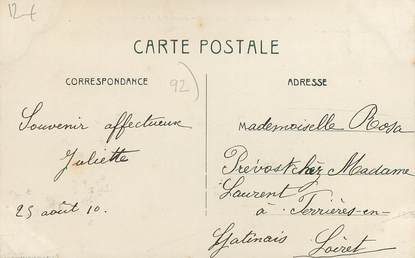 12€
CARTE POSTALE
CORRESPONDANCE
92)
ADRESSE
Souvenir affectueux
Juliette
25 août 10.
Mademoiselle Rosa
Prévost chez Madame
Laurent
à Ferrières-en-
Gatinais Loiret